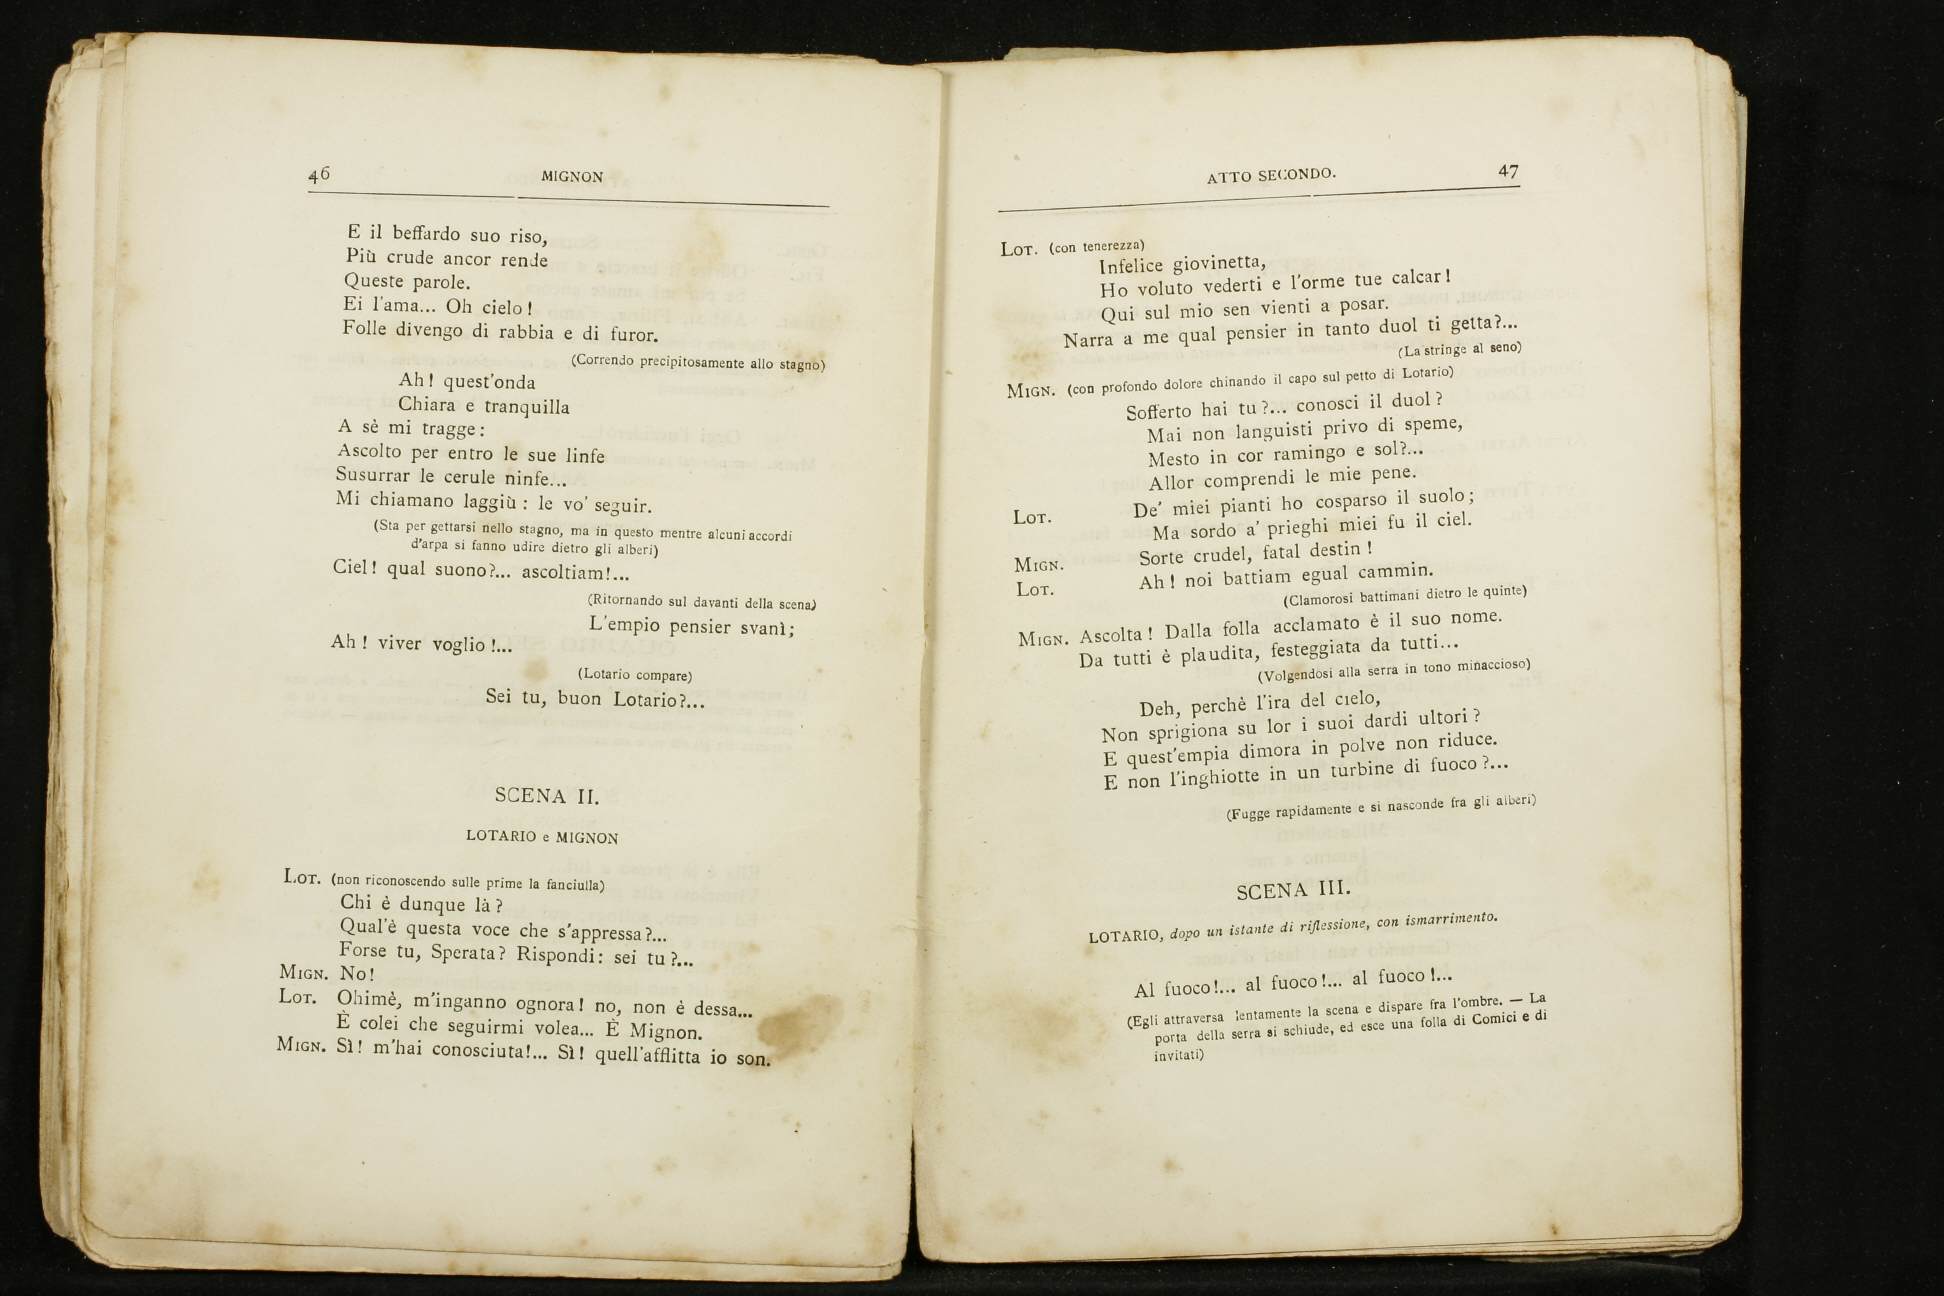 46
MIGNON
E il beffardo suo riso,
Più crude ancor rende
Queste parole.
Ei l'ama... Oh cielo!
Folle divengo di rabbia e di furor.
(Correndo precipitosamente allo stagno)
Ah! quest'onda
Chiara e tranquilla
A sè mi tragge:
Ascolto per entro le sue linfe
Susurrar le cerule ninfe...
Mi chiamano laggiù: le vo' seguir.
(Sta per gettarsi nello stagno, ma in questo mentre alcuni accordi
d'arpa si fanno udire dietro gli alberi)
Ciel! qual suono?... ascoltiam!...
(Ritornando sul davanti della scena)
L'empio pensier svanì;
Ah! viver voglio!...
(Lotario compare)
Sei tu, buon Lotario?...
SCENA II.
LOTARIO e MIGNON
LOT. (non riconoscendo sulle prime la fanciulla)
Chi è dunque là?
Qual'è questa voce che s'appressa?...
Forse tu, Sperata? Rispondi: sei tu?...
MIGN. No!
LOT. Ohimè, m'inganno ognora! no, non è dessa...
È colei che seguirmi volea... È Mignon.
MIGN. Sì! m'hai conosciuta!... Sì! quell'afflitta io son.
ATTO SECONDO.
47
LOT. (con tenerezza)
Infelice giovinetta,
Ho voluto vederti e l'orme tue calcar!
Qui sul mio sen vienti a posar.
Narra a me qual pensier in tanto duol ti getta?...
(La stringe al seno)
MIGN. (con profondo dolore chinando il capo sul petto di Lotario)
Sofferto hai tu?... conosci il duol?
Mai non languisti privo di speme,
Mesto in cor ramingo e sol?...
Allor comprendi le mie pene.
LOT. De' miei pianti ho cosparso il suolo;
Ma sordo a' prieghi miei fu il ciel.
MIGN. Sorte crudel, fatal destin!
LOT. Ah! noi battiam egual cammin.
(Clamorosi battimani dietro le quinte)
MIGN. Ascolta! Dalla folla acclamato è il suo nome.
Da tutti è plaudita, festeggiata da tutti...
(Volgendosi alla serra in tono minaccioso)
Deh, perchè l'ira del cielo,
Non sprigiona su lor i suoi dardi ultori?
E quest'empia dimora in polve non riduce.
E non l'inghiotte in un turbine di fuoco?...
(Fugge rapidamente e si nasconde fra gli alberi)
SCENA III.
LOTARIO, dopo un istante di riflessione, con ismarrimento.
Al fuoco!... al fuoco!... al fuoco!...
(Egli attraversa lentamente la scena e dispare fra l'ombre. — La
porta della serra si schiude, ed esce una folla di Comici e di
invitati)